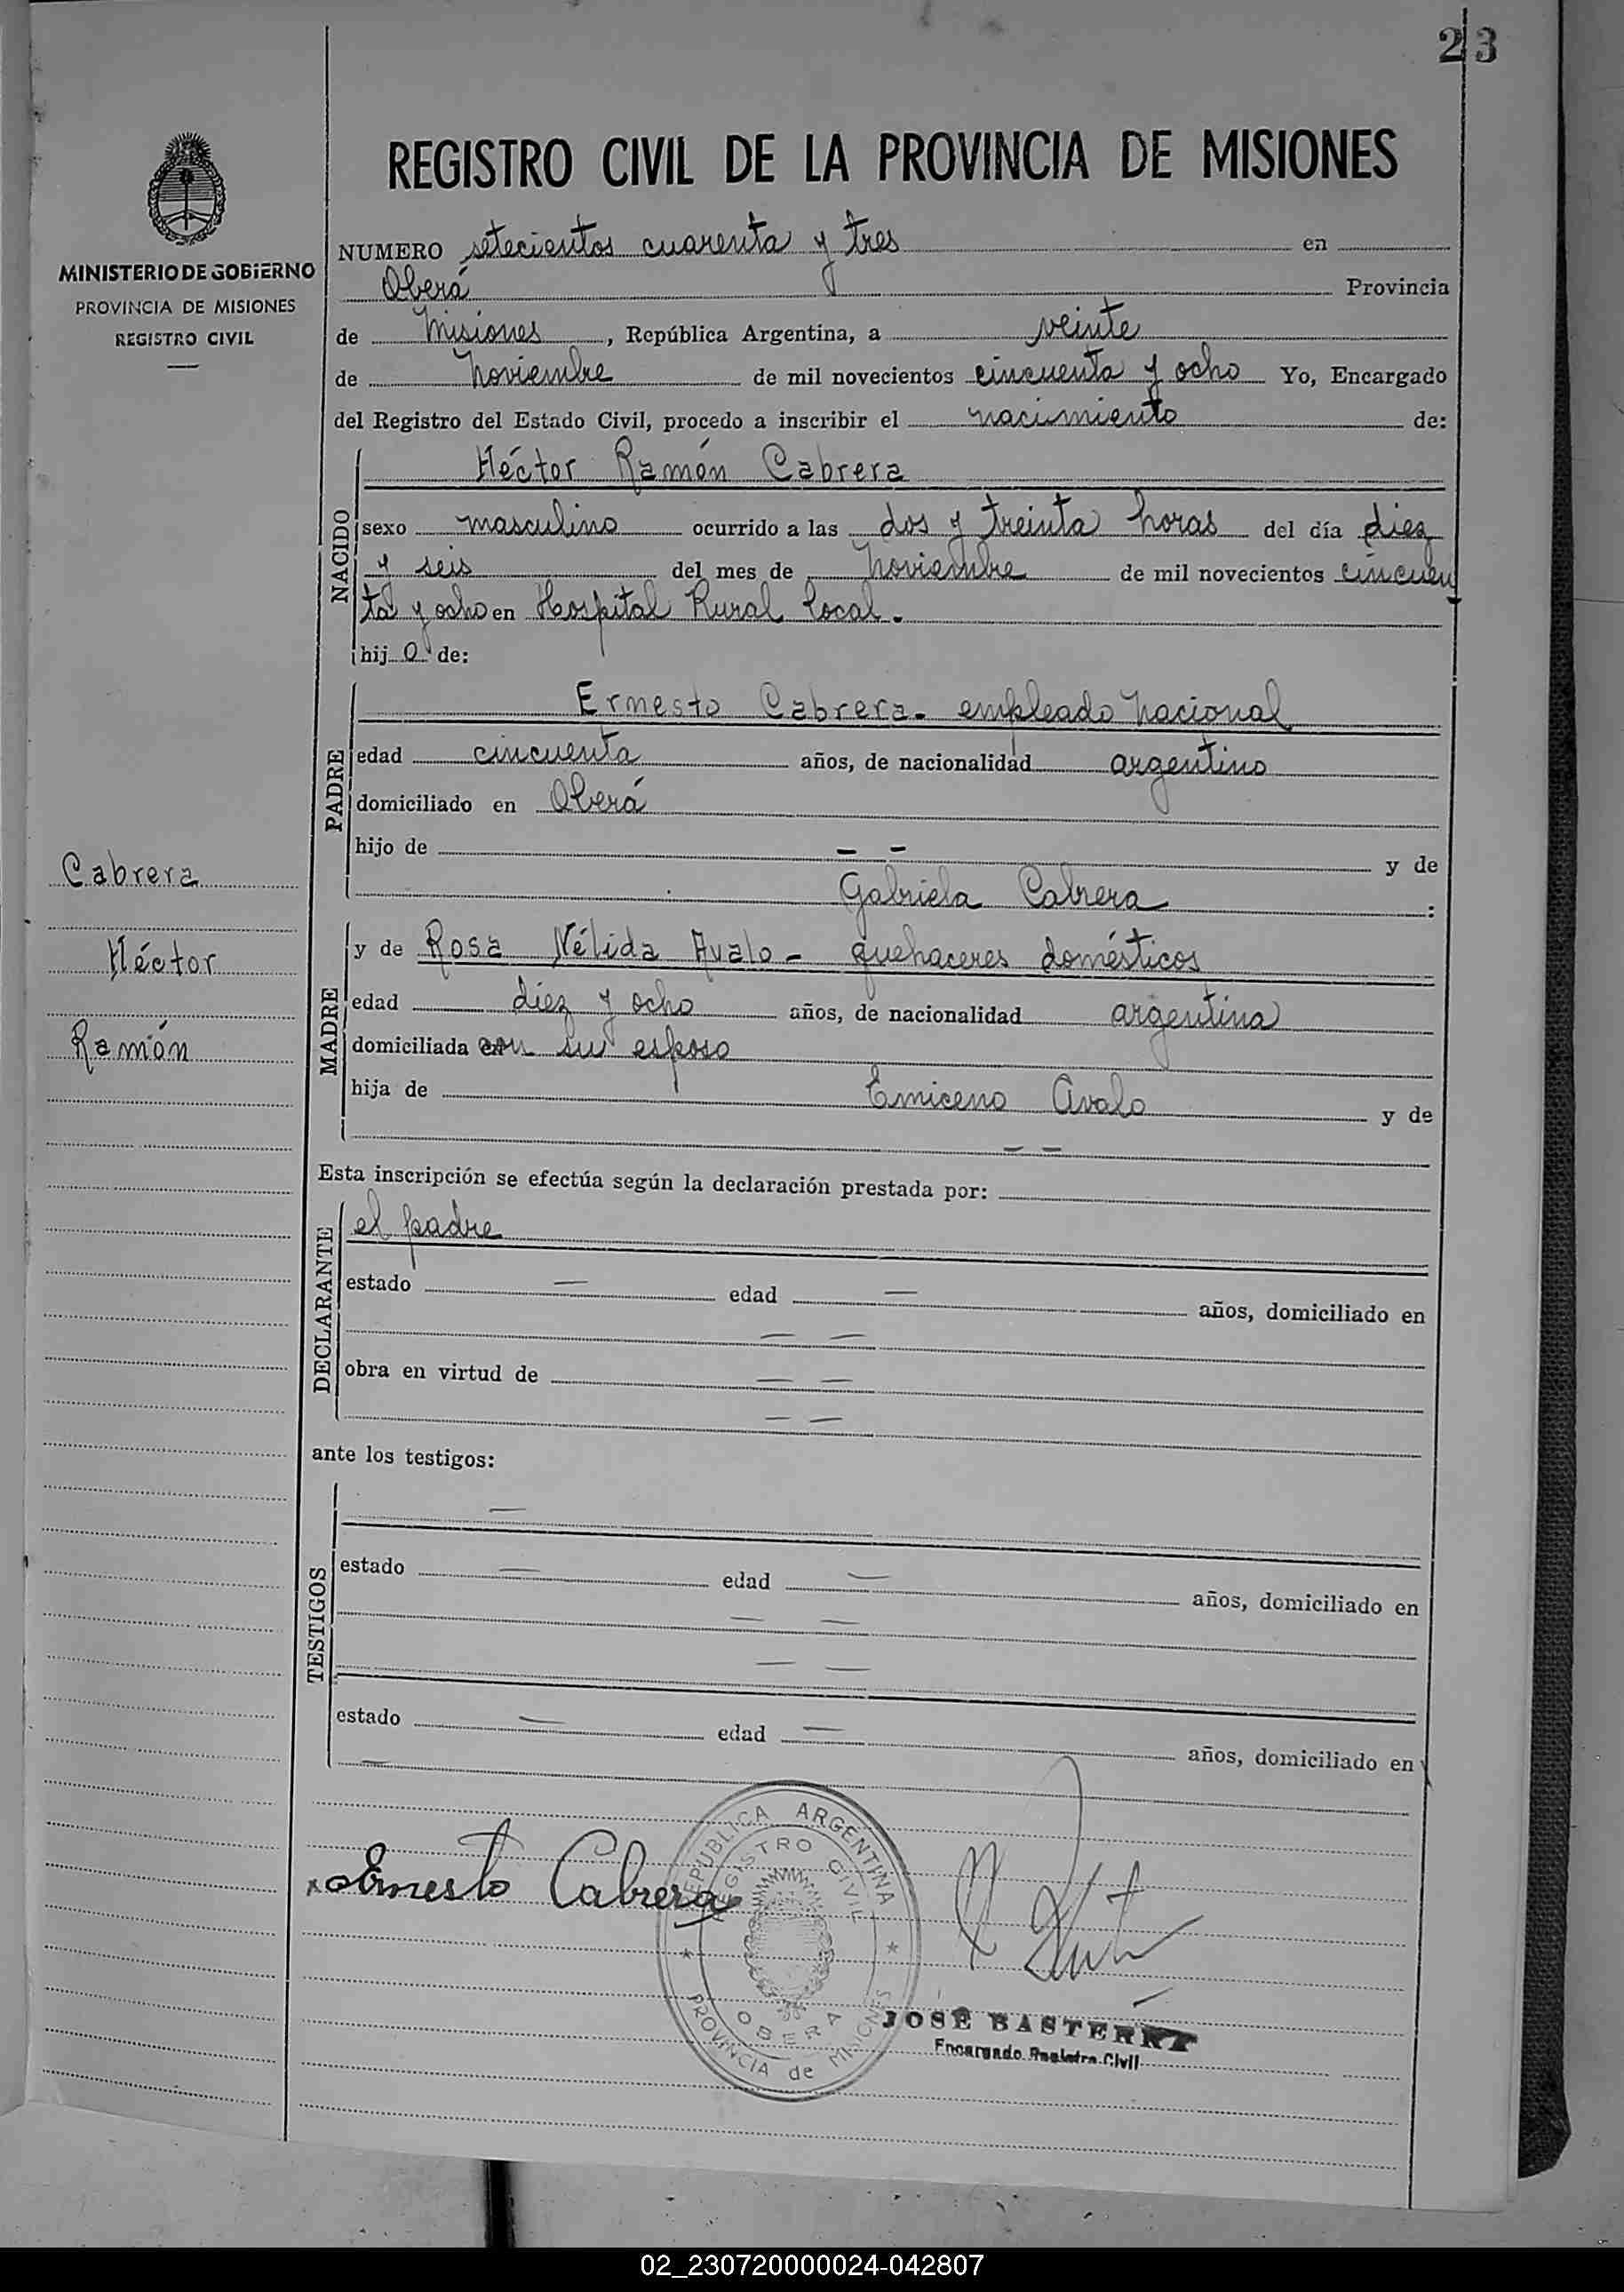 23
REGISTRO CIVIL DE LA PROVINCIA DE MISIONES
MINISTERIO DE GOBIERNO
PROVINCIA DE MISIONES
REGISTRO CIVIL
NUMERO setecientos cuarenta y tres en
Oberá Provincia
de Misiones, República Argentina, a veinte
de Noviembre de mil novecientos cincuenta y ocho Yo, Encargado
del Registro del Estado Civil, procedo a inscribir el nacimiento de:
NACIDO
Héctor Ramón Cabrera
sexo masculino ocurrido a las dos y treinta horas del día diez
y seis del mes de Noviembre de mil novecientos cincuen
ta y ocho en Hospital Rural local.
hij o de:
PADRE
Ernesto Cabrera - empleado Nacional
edad cincuenta años, de nacionalidad argentino
domiciliado en Oberá
hijo de - - y de
Gabriela Cabrera :
MADRE
y de Rosa Nélida Avalo - quehaceres domésticos
edad diez y ocho años, de nacionalidad argentina
domiciliada con su esposo
hija de Emiceno Avalo y de
- -
Cabrera
Héctor
Ramón
Esta inscripción se efectúa según la declaración prestada por:
DECLARANTE
el padre
estado — edad — años, domiciliado en
— —
obra en virtud de — —
— —
ante los testigos:
TESTIGOS
—
estado — edad — años, domiciliado en
— —
— —
estado — edad — años, domiciliado en
—
x Ernesto Cabrera
REPUBLICA ARGENTINA
REGISTRO CIVIL
OBERA
PROVINCIA de MISIONES
JOSÉ BASTERRA
Encargado Registro Civil
02_230720000024-042807